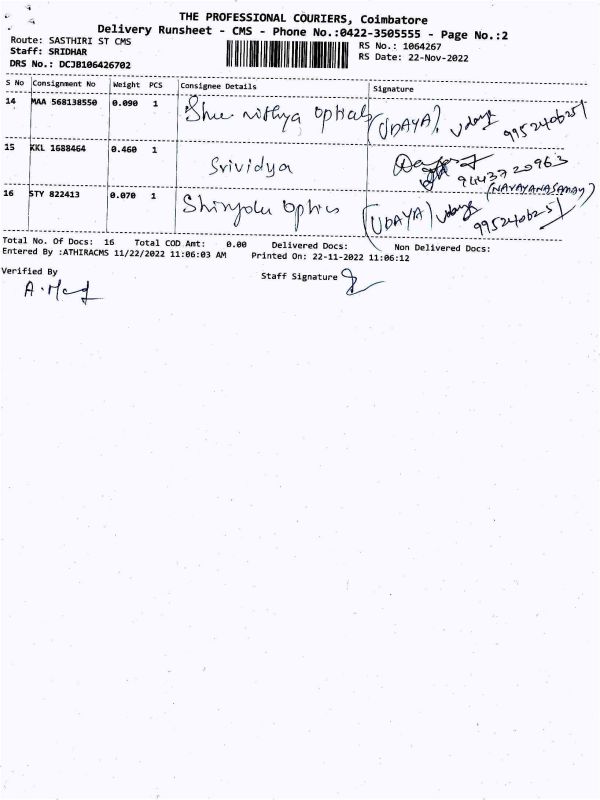 THE PROFESSIONAL COURIERS, Coimbatore
Delivery Runsheet - CMS - Phone No.:0422-3505555 - Page No.:2
Route: SASTHIRI ST CMS
Staff: SRIDHAR
DRS No.: DCJB106426702
RS No.: 1064267
RS Date: 22-Nov-2022
S No Consignment No Weight PCS Consignee Details Signature
14 MAA 568138550 0.090 1 Shree nithya opticals (UDAYA). Udaya 9952406251
15 KKL 1688464 0.460 1 Srividya 9443720963
(NARAYANASAMY)
16 STY 822413 0.070 1 Optics (UDAYA) Udaya 9952406251
Total No. Of Docs: 16 Total COD Amt: 0.00 Delivered Docs: Non Delivered Docs:
Entered By :ATHIRACMS 11/22/2022 11:06:03 AM Printed On: 22-11-2022 11:06:12
Verified By Staff Signature